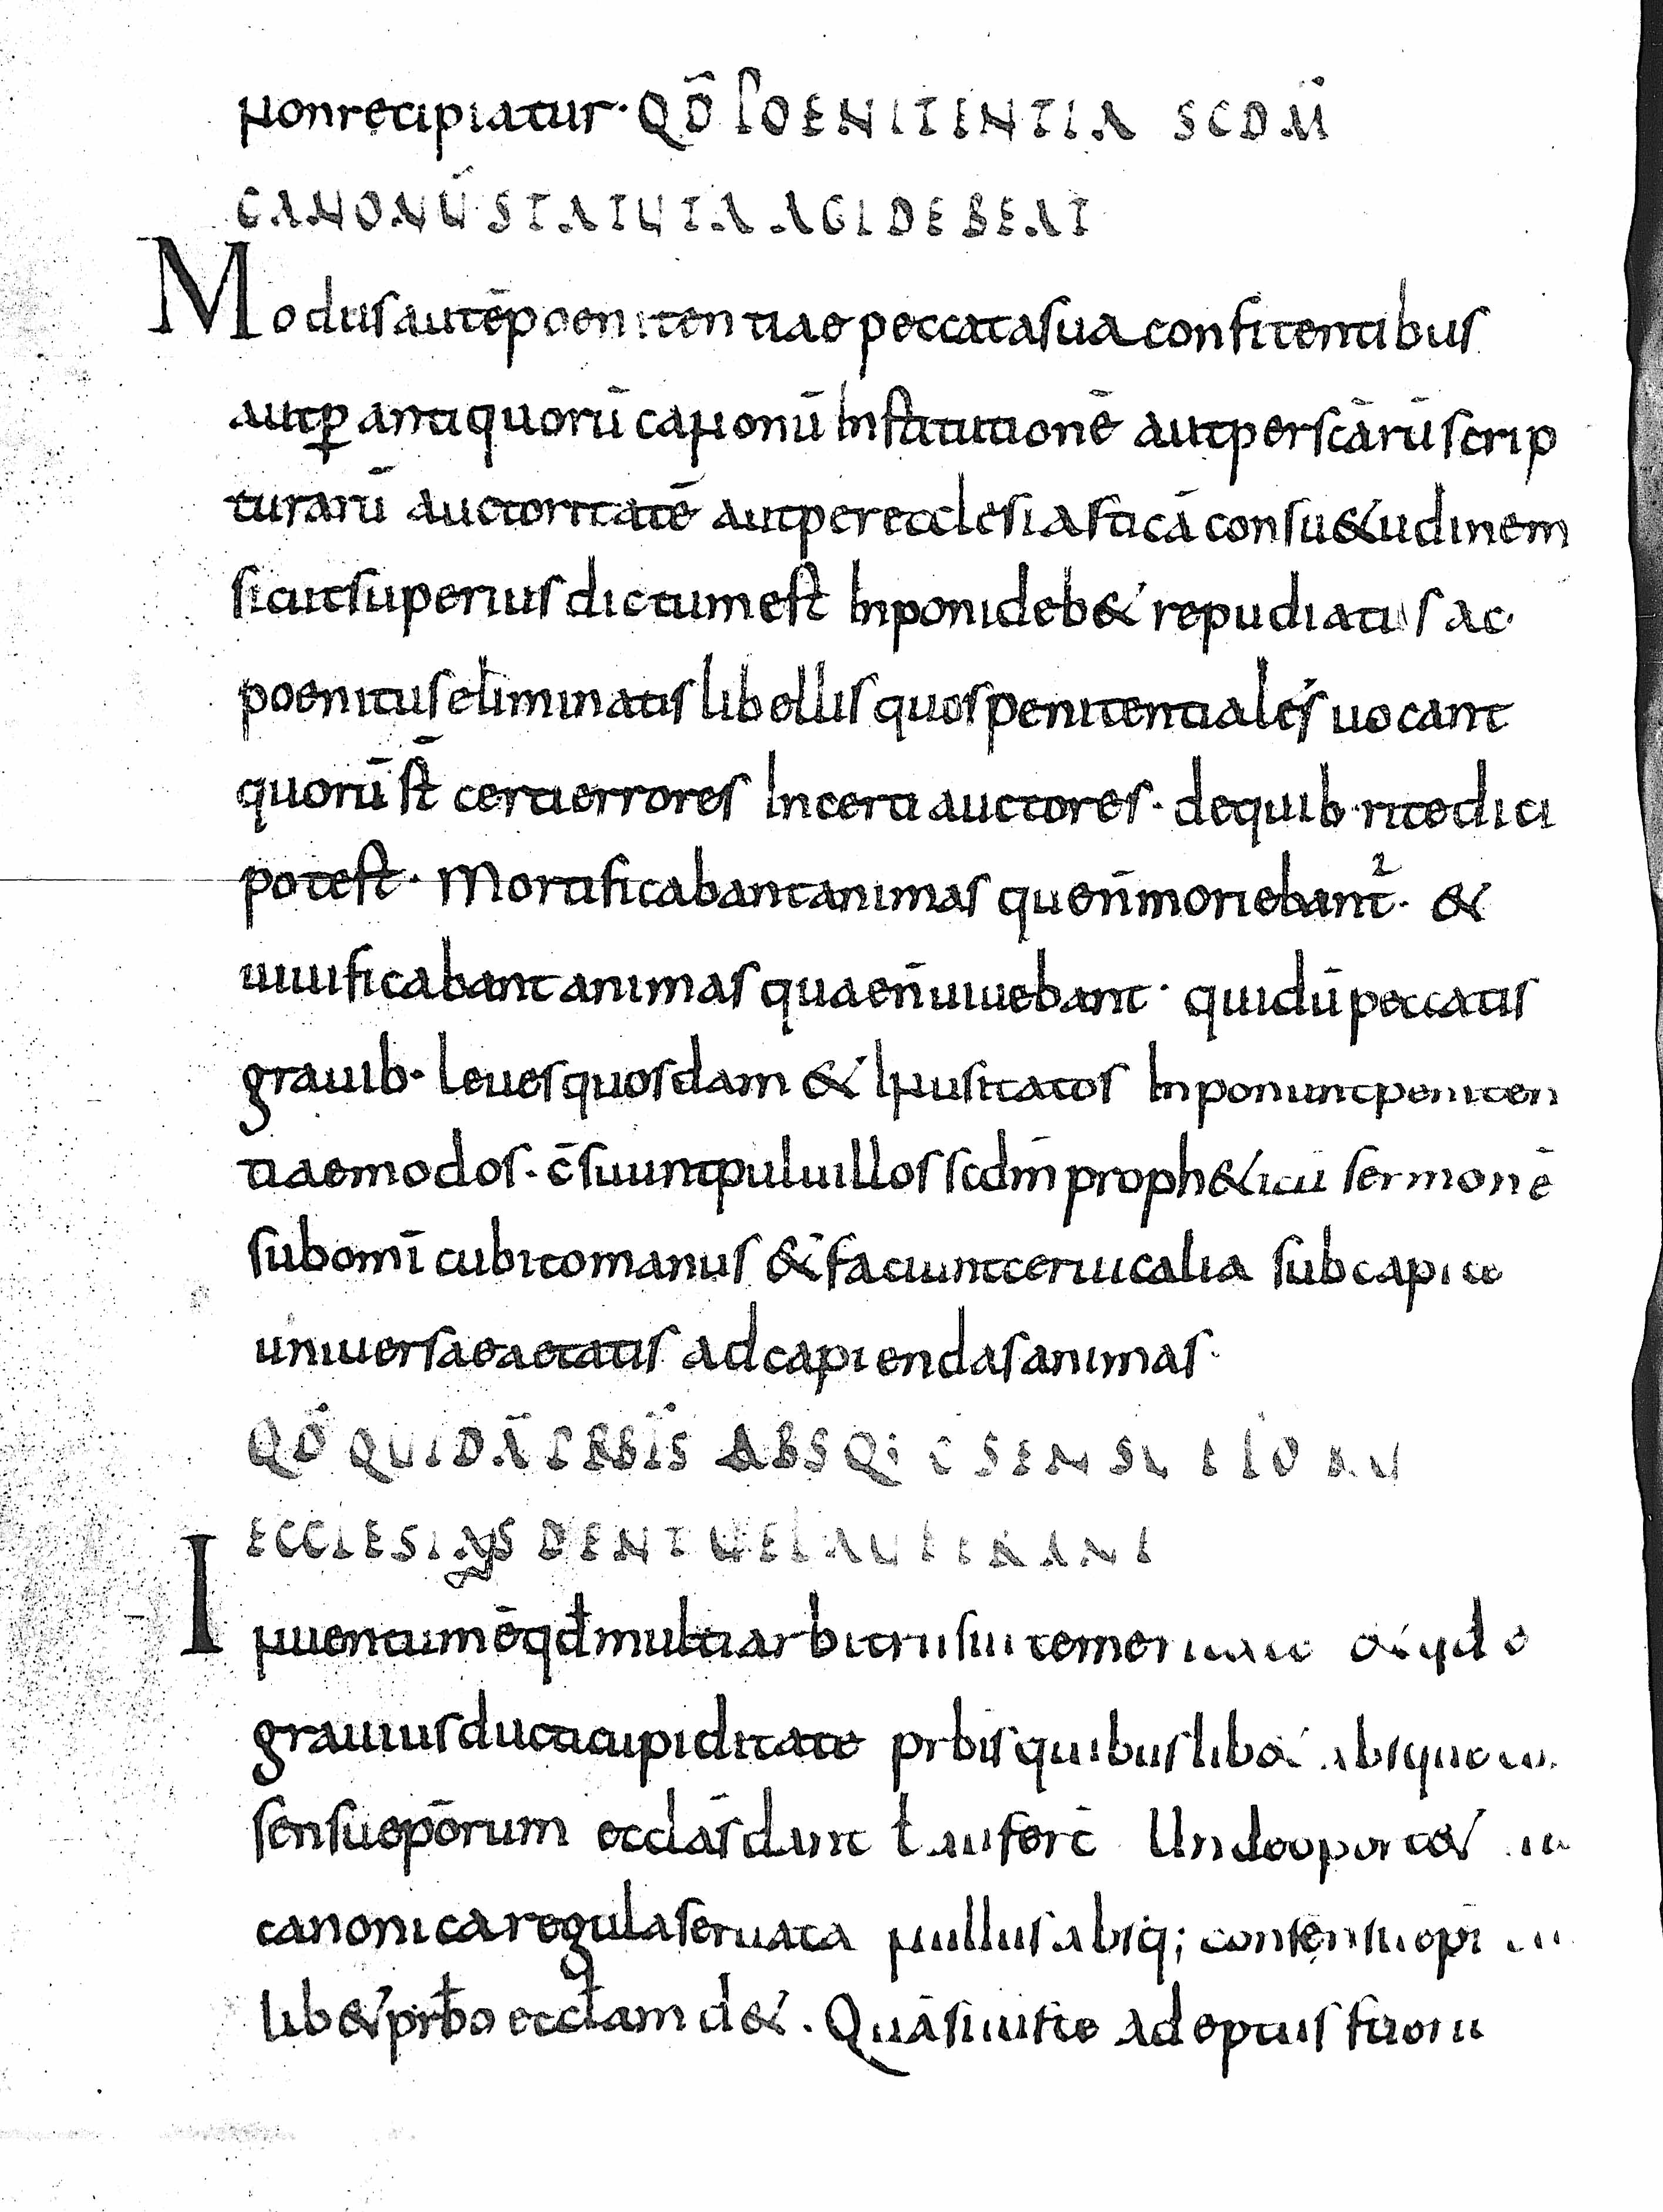 nonrecipiatur· QD̄ POENITENTIA SCDM̄
CANONŪ STATUTA AGI DEBEAT
Modus autē poenitentiae peccata sua confitentibus
aut ꝑ antiquorū canonū Institutionē aut per scārū scrip
turarū auctoritatē aut per ecclesiasticā consu&udinem
sicut superius dictum est Inponi deb& repudiatis ac
poenitus eliminatis libellis quos penitentiales uocant
quorū st̄ certi errores Incerti auctores· de quib· rite dici
potest· Mortificabant animas quae n̄ moriebant²· &
uiuificabant animas quae n̄ uiuebant· qui dū peccatis
grauib· leues quosdam & Inusitatos Inponunt peniten
tiae modos· c̄suunt puluillos scdm̄ proph&icū sermonē
sub omī cubito manus & faciunt ceruicalia sub capite
uniuersae aetatis ad capiendas animas·
QD̄ QUIDĀ PRBĪS ABSQ; CSENSU EPORU
ECCLESIAS DENT UEL AUFERANT
Inuentum ē qd̄ multi arbitrii sui temeritate &qd ē
grauius ducti cupiditate prbis quibus lib&
sensu epōrum ecclās dant ł auferē Unde oport&
canonica regula seruata nullus absq; consensu epī
lib& prb̄o eccłam d&· Quā si iuste adeptus fuerit